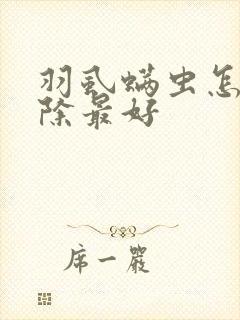 羽虱螨虫怎
除最好
席一严